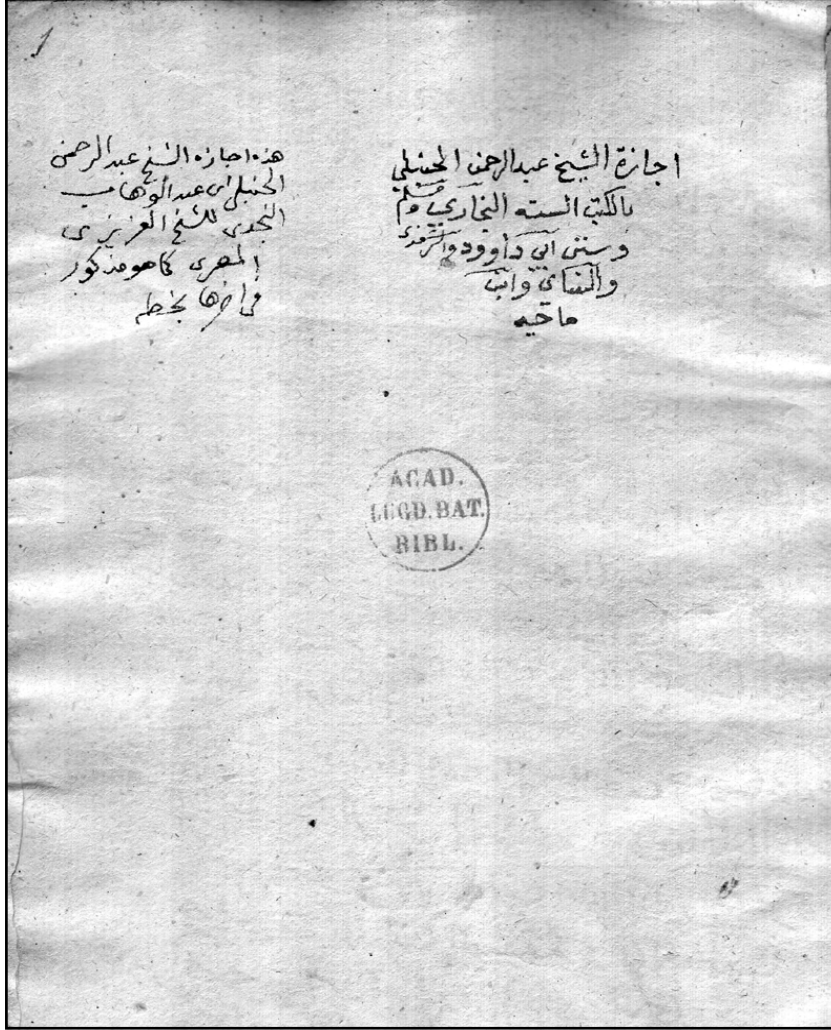 1
اجازة الشيخ عبدالرحمن الحنبلي
بالكتب السته البخاري ومسلم
وسنن ابي داوود والترمذي
والنساي وابن
ماجه
هذه اجازه الشيخ عبدالرحمن
الحنبلي ابن عبد الوهاب
النجدي للشيخ العزيزى
المصرى كما هو مذكور
فى اخرها بخطه
ACAD.
LUGD.BAT.
BIBL.